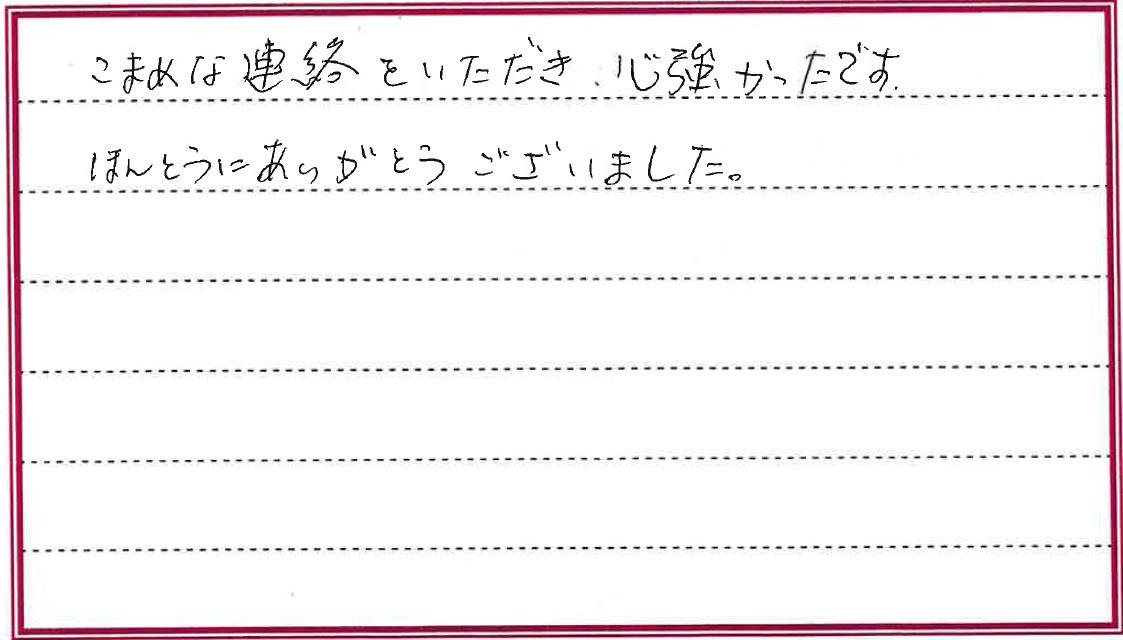 こまめな連絡をいただき、心強かったです。
ほんとうにありがとうございました。